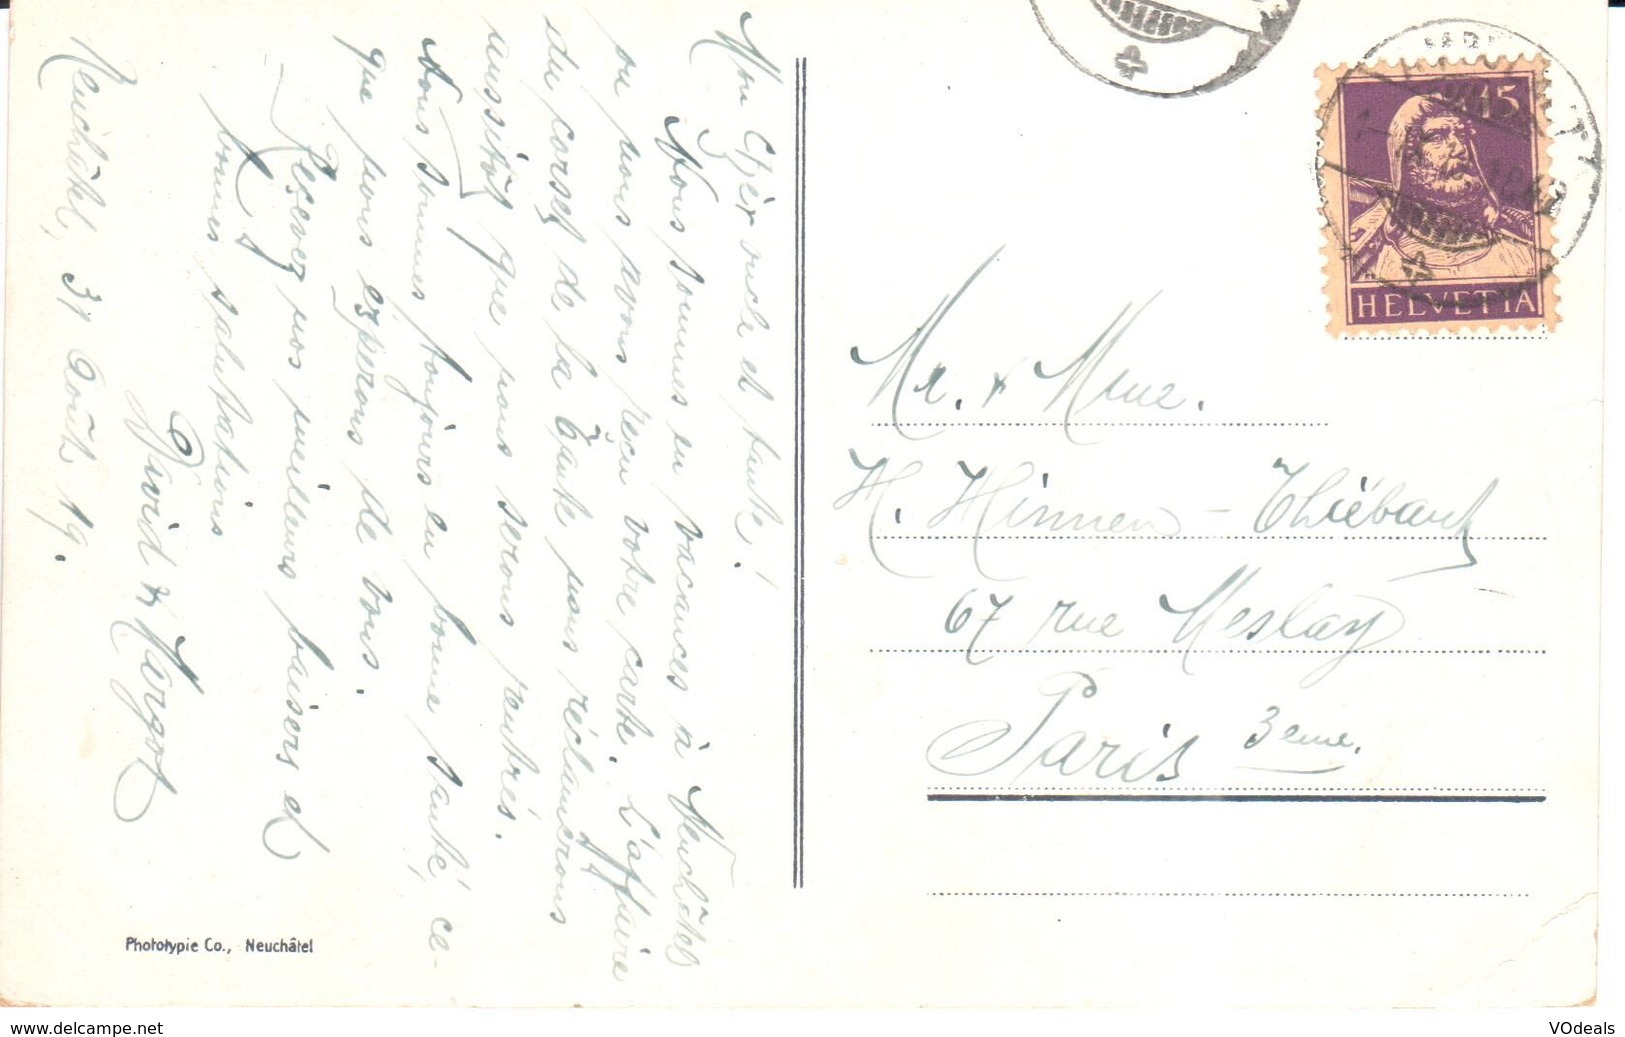 Mon cher oncle et tante!
Nous sommes en vacances à Neuchâtel
ou nous avons reçu votre carte. L'affaire
du corset de la Tante nous réclamerons
aussitôt que nous serons rentrés.
Nous sommes toujours en bonne santé, ce-
que nous espérons de vous.
Recevez nos meilleurs baisers et
bonnes salutations
David & Margot
Neuchâtel, 31 Août 19.
Phototypie Co., Neuchâtel
15
HELVETIA
Mr. & Mme.
H. Hinnen - Thiébaut
67 rue Meslay
Paris 3eme.
www.delcampe.net
VOdeals